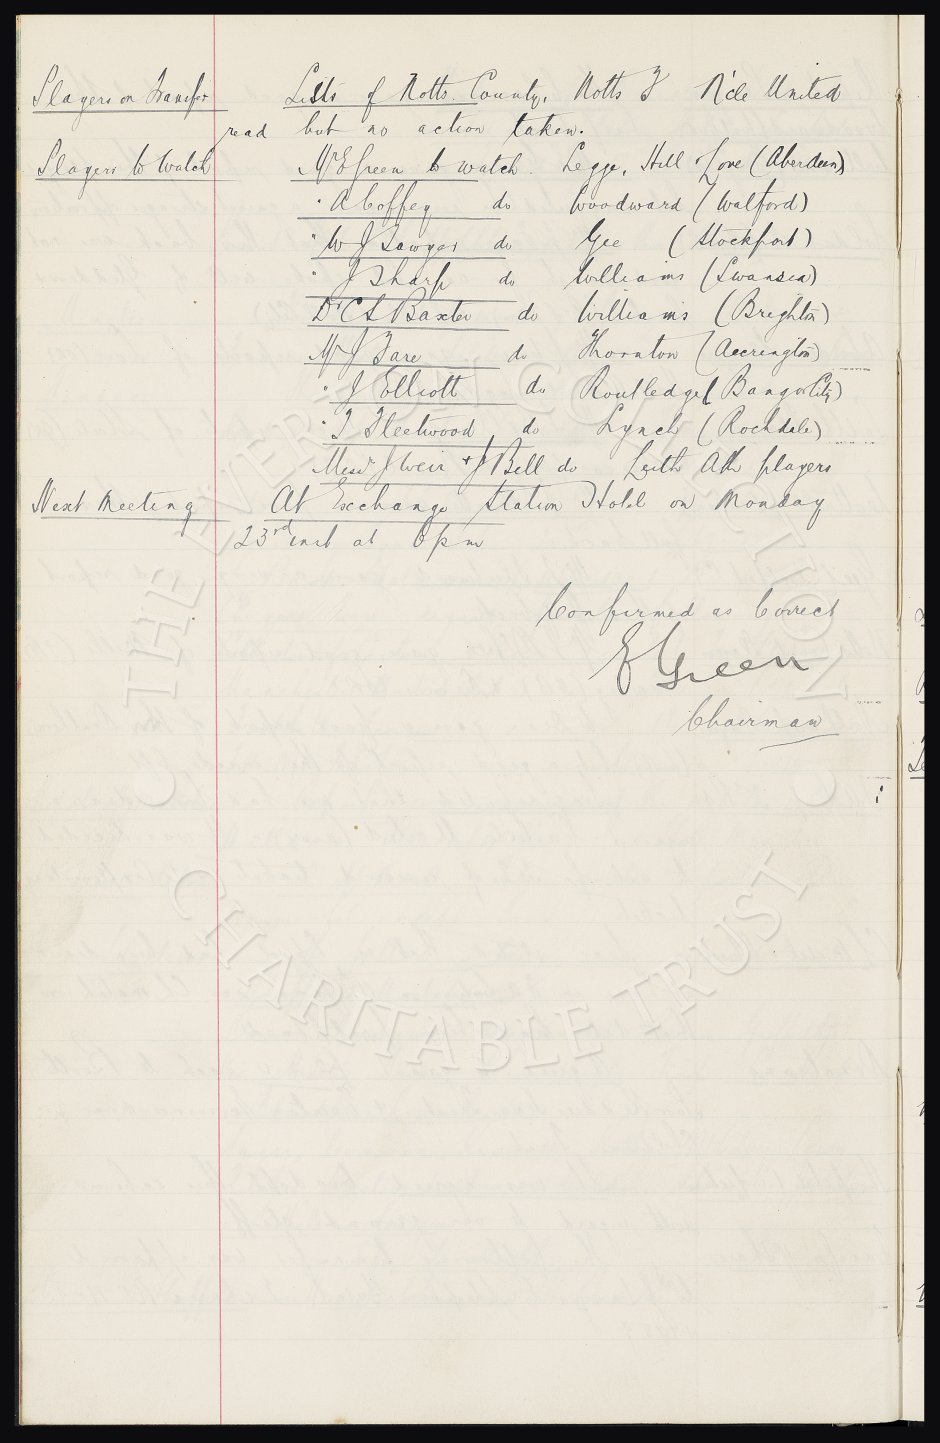 Players on Transfer Lists of Notts. County, Notts F N'cle United
read but no action taken.
Players to Watch Mr E Green to watch. Legge, Hill & Love (Aberdeen)
" A Coffey do Woodward (Watford)
" W J Sawyer do Gee (Stockport)
" J Sharp do Williams (Swansea)
Dr C S Baxter do Williams (Brighton)
Mr J Fare do Thornton (Accrington)
" J Elliott do Routledge (Bangor City)
" T Fleetwood do Lynch (Rochdale)
Messrs J Weir & J Bell do Leith Ath players
Next Meeting At Exchange Station Hotel on Monday
23rd inst at 6pm
Confirmed as Correct
E Green
Chairman
THE EVERTON COLLECTION
CHARITABLE TRUST